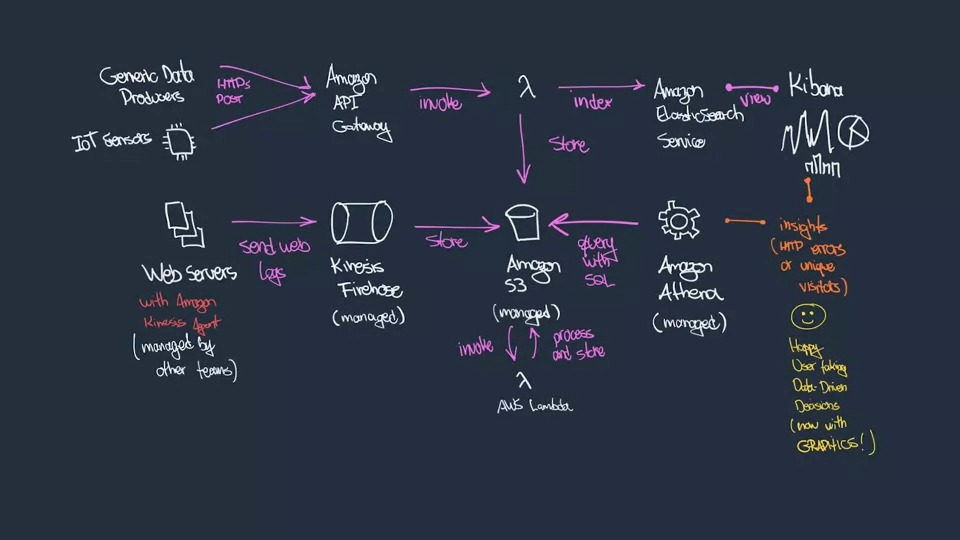 Generic Data
Producers
HTTPs
POST
IoT Sensors
Amazon
API
Gateway
invoke
λ
index
Amazon
ElasticSearch
Service
view
Kibana
Store
Web Servers
with Amazon
Kinesis Agent
(managed by
other teams)
send web
logs
Kinesis
Firehose
(managed)
store
Amazon
S3
(managed)
query
with
SQL
Amazon
Athena
(managed)
insights
(HTTP errors
or unique
visitors)
invoke
process
and store
λ
AWS Lambda
Happy
User taking
Data-Driven
Decisions
(now with
GRAPHICS!)